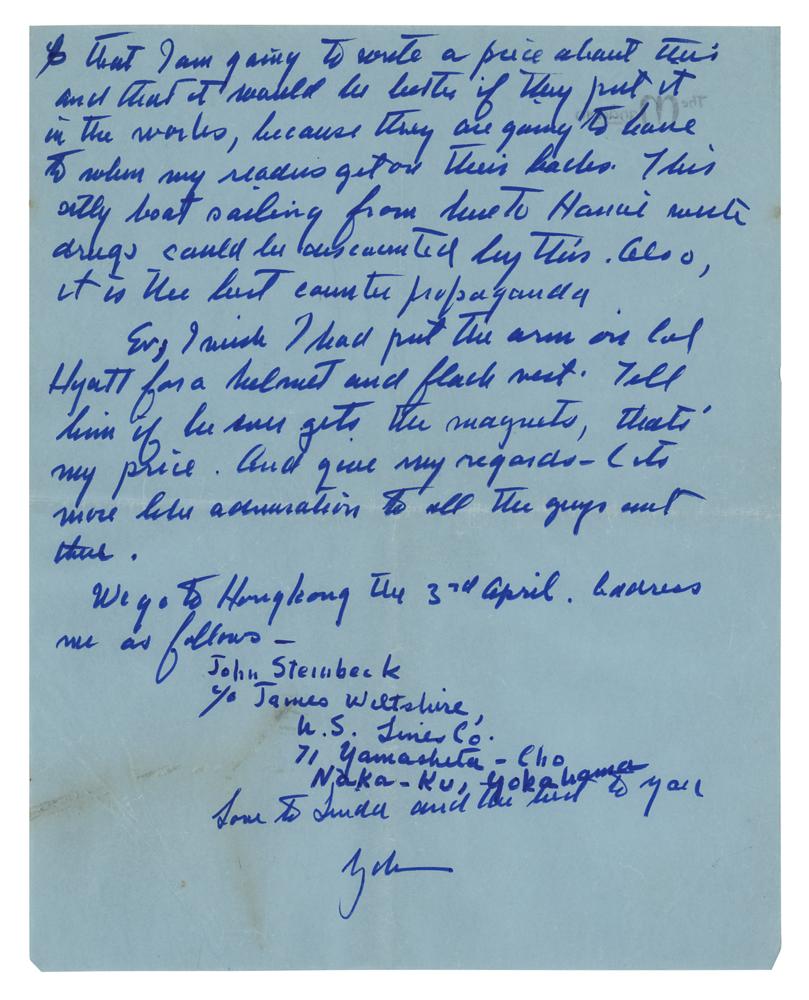 that I am going to write a piece about this
and that it would be better if they put it
in the works, because they are going to have
to when my readers get on their backs. This
silly boat sailing from here to Hanoi with
drugs could be discounted by this. Also,
it is the best counter propaganda
Ev, I wish I had put the arm on Col
Hyatt for a helmet and flack vest. Tell
him if he ever gets the magnets, thats'
my price. And give my regards - (its
more like admiration to all the guys out
there.
We go to Hongkong the 3rd April. Address
me as follows -
John Steinbeck
c/o James Wiltshire
U.S. Lines Co.
71 Yamasheta - Cho
Naka-Ku, Yokahama
Love to Linda and the best to you
John
The M